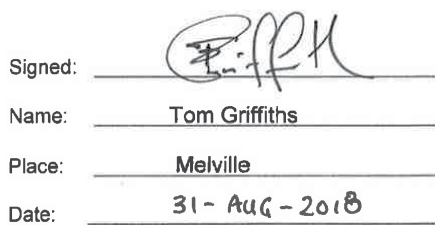 Signed:
Name: Tom Griffiths
Place: Melville
Date: 31-AUG-2018